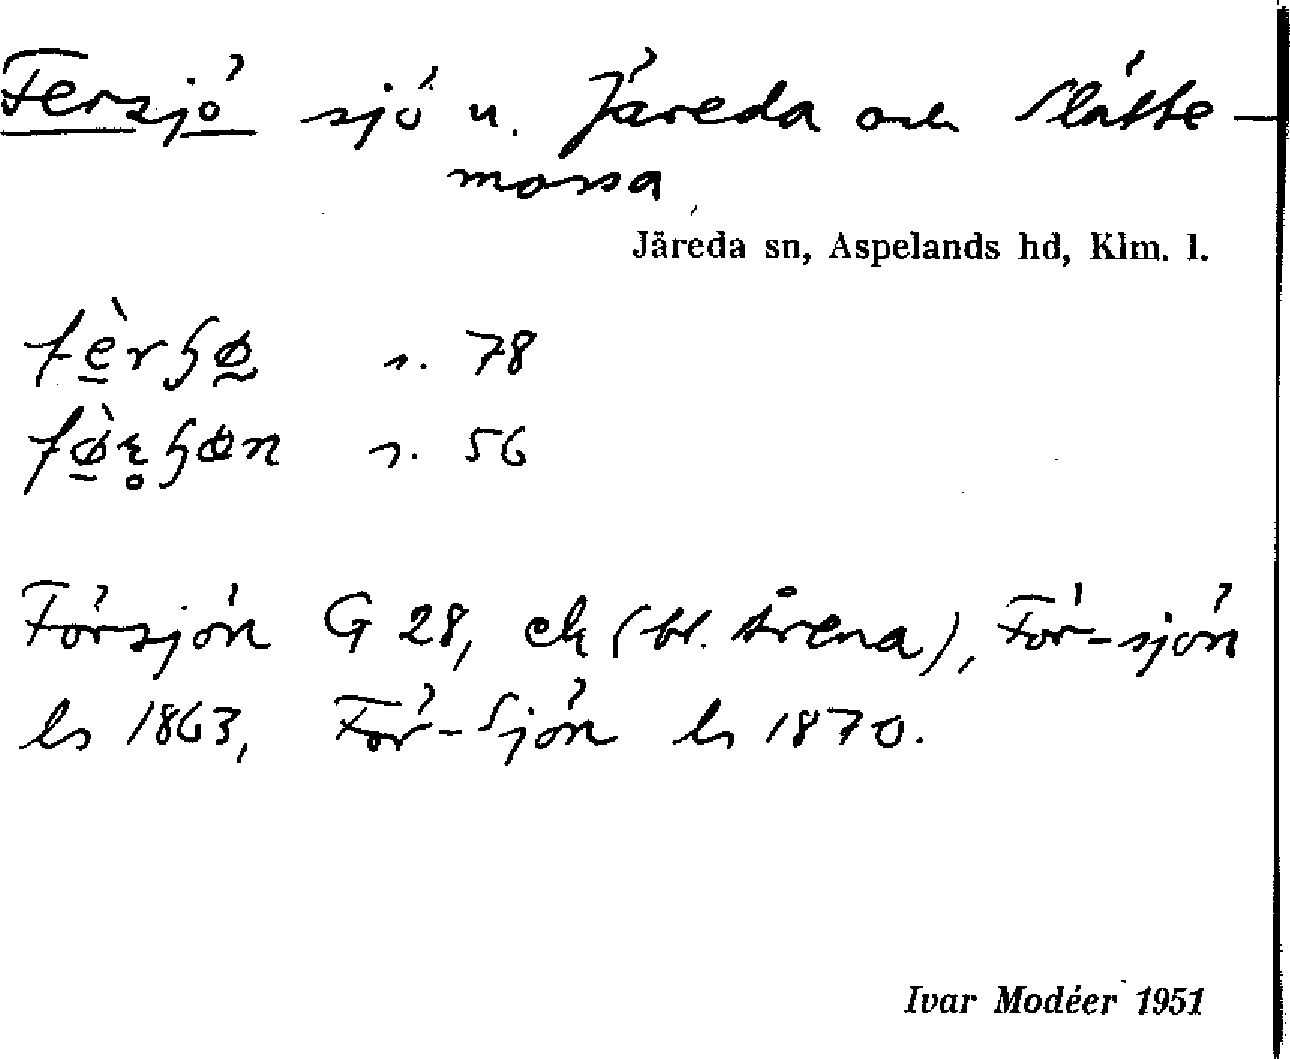 Fersjö sjö u. Järeda och Slätte-
mossa
Järeda sn, Aspelands hd, Klm. l.
s. 78
s. 56
Försjön G 28, ek (bl. Årena), För-sjön
ls 1863, För-Sjön ls 1870.
Ivar Modéer 1951